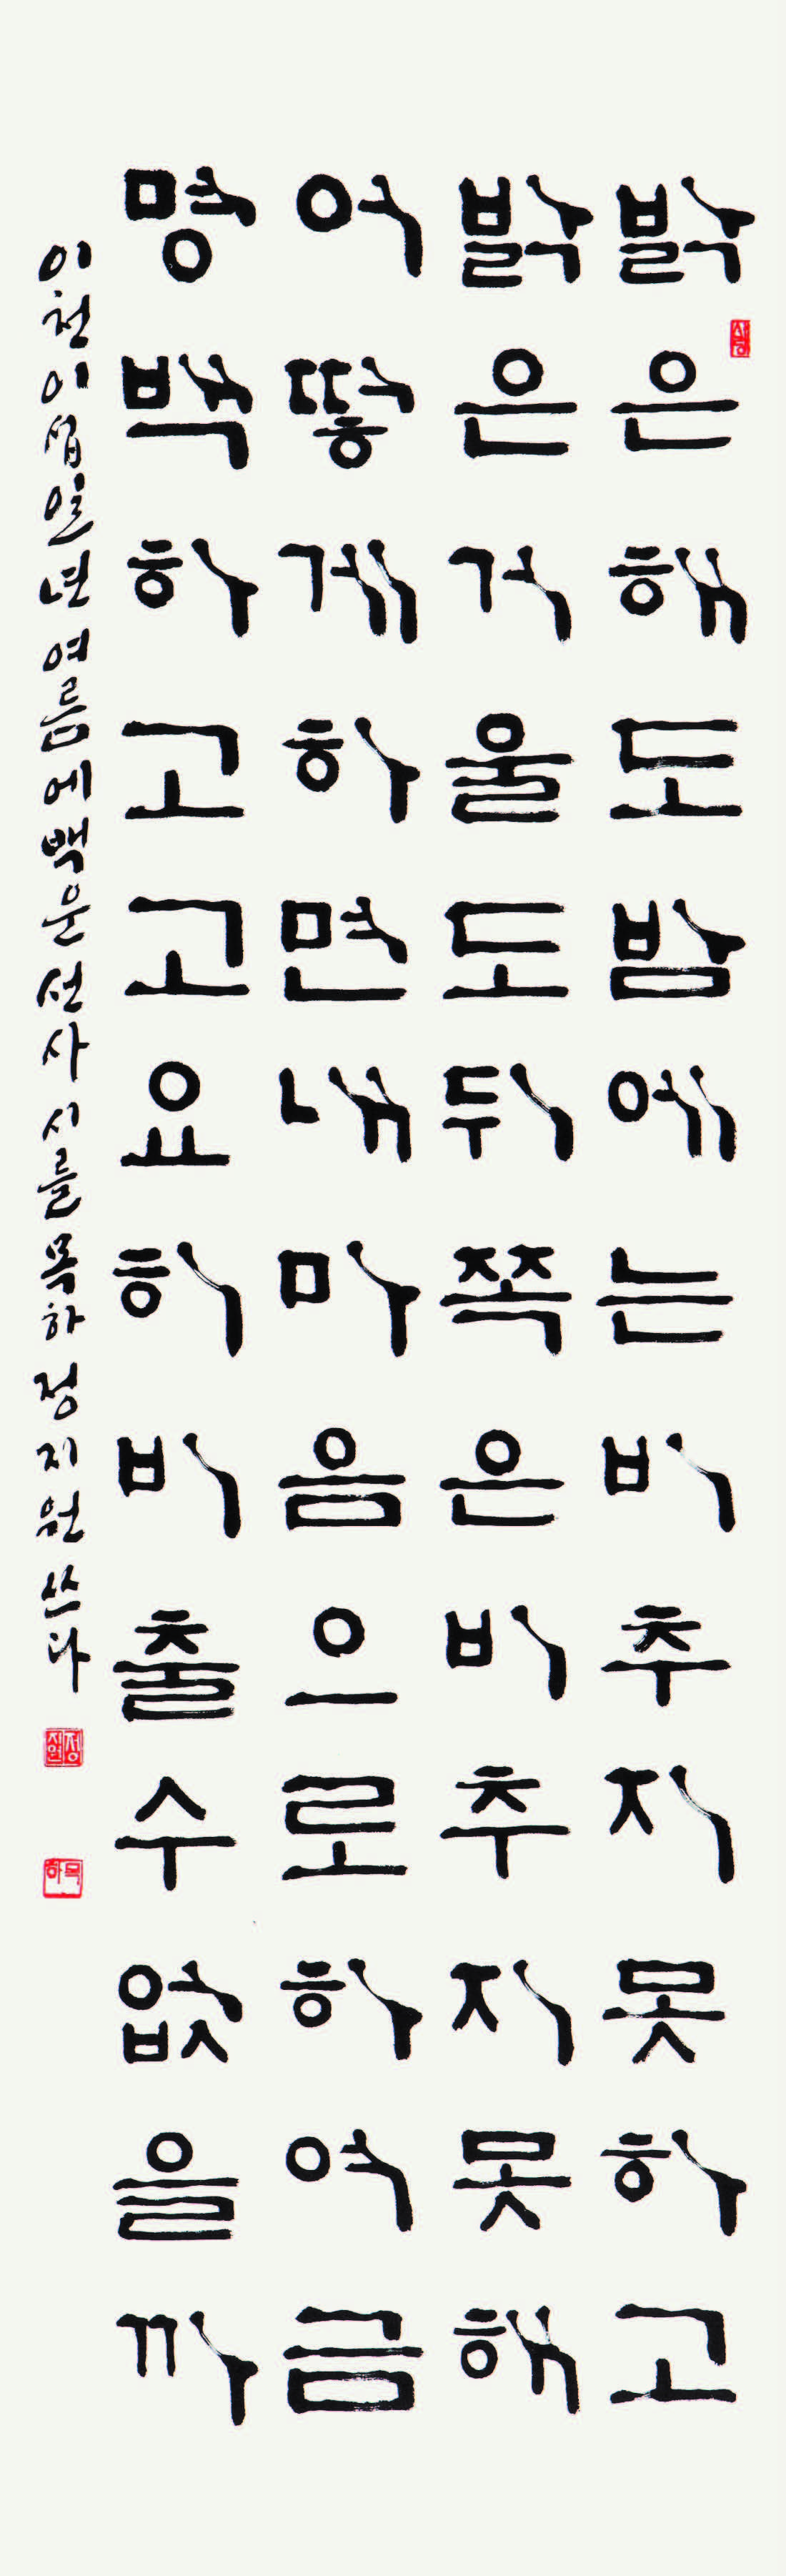 밝은해도밤에는비추지못하고
밝은거울도뒤쪽은비추지못해
어떻게하면내마음으로하여금
명백하고고요히비출수없을까
이천이십일년여름에백운선사시를목하정지원쓰다
정지원
목하